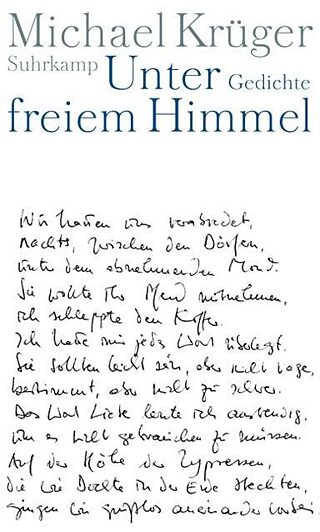 Michael Krüger
Suhrkamp Unter Gedichte
freiem Himmel
Wir hatten uns verabredet,
nachts, zwischen den Dörfern,
unter dem abnehmenden Mond.
Sie wollte Ihr mitnehmen,
ich schleppte den Koffer.
Ich hatte mir jedes Wort überlegt.
Sie sollten leicht sein, aber nicht vage,
bestimmt, aber nicht zu schwer.
Das Wort Liebe lernte ich auswendig,
um es nicht gebrauchen zu müssen.
Auf der Höhe der Zypressen,
die wie Dochte in der Erde steckten,
gingen wir grußlos aneinander vorbei.